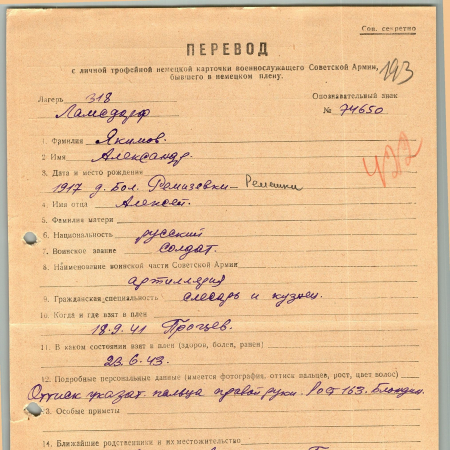 Сов. секретно
ПЕРЕВОД
с личной трофейной немецкой карточки военнослужащего Советской Армии,
бывшего в немецком плену.
193
Лагерь 318
Ламсдорф
Опознавательный знак
№ 74650
422
1. Фамилия Якимов.
2. Имя Александр.
3. Дата и место рождения
1917 д. бол. Ремизевки - Ремешки
4. Имя отца Алексей.
5. Фамилия матери
6. Национальность русский
7. Воинское звание солдат.
8. Наименование воинской части Советской Армии
артиллерия
9. Гражданская специальность слесарь и кузнец.
10. Когда и где взят в плен
18.9.41
11. В каком состоянии взят в плен (здоров, болен, ранен)
23.6.43.
12. Подробные персональные данные (имеется фотография, оттиск пальцев, рост, цвет волос)
Оттиск указат. пальца правой руки. Рост 163. Блондин.
3. Особые приметы
14. Ближайшие родственники и их местожительство